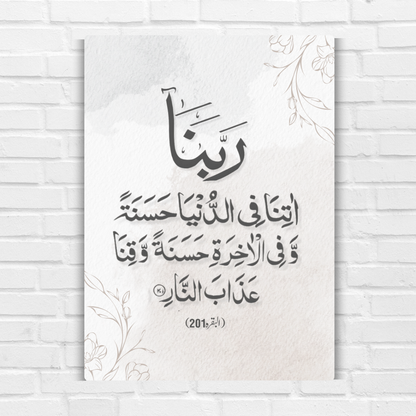 رَبَّنَآ
اٰتِنَا فِی الدُّنْيَا حَسَنَةً
وَّ فِی الْاٰخِرَةِ حَسَنَةً وَّقِنَا
عَذَابَ النَّارِ ﴿۲۰۱﴾
(البقره 201)